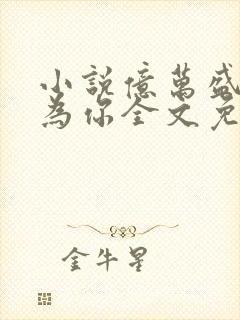 小說億萬盛
為你全文免
金牛星